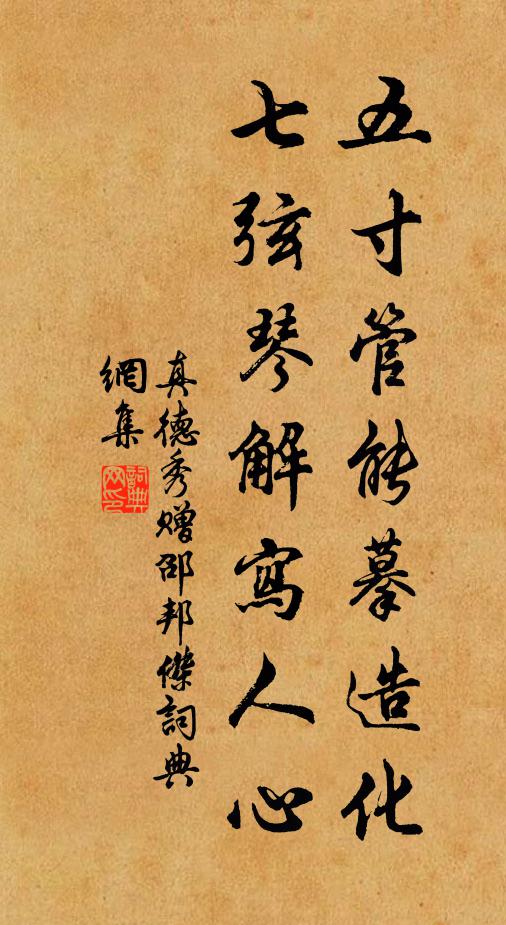 五寸管能摹造化
七弦琴解寫人心
真德秀贈邵邦傑詞典
網集
詞典
網印